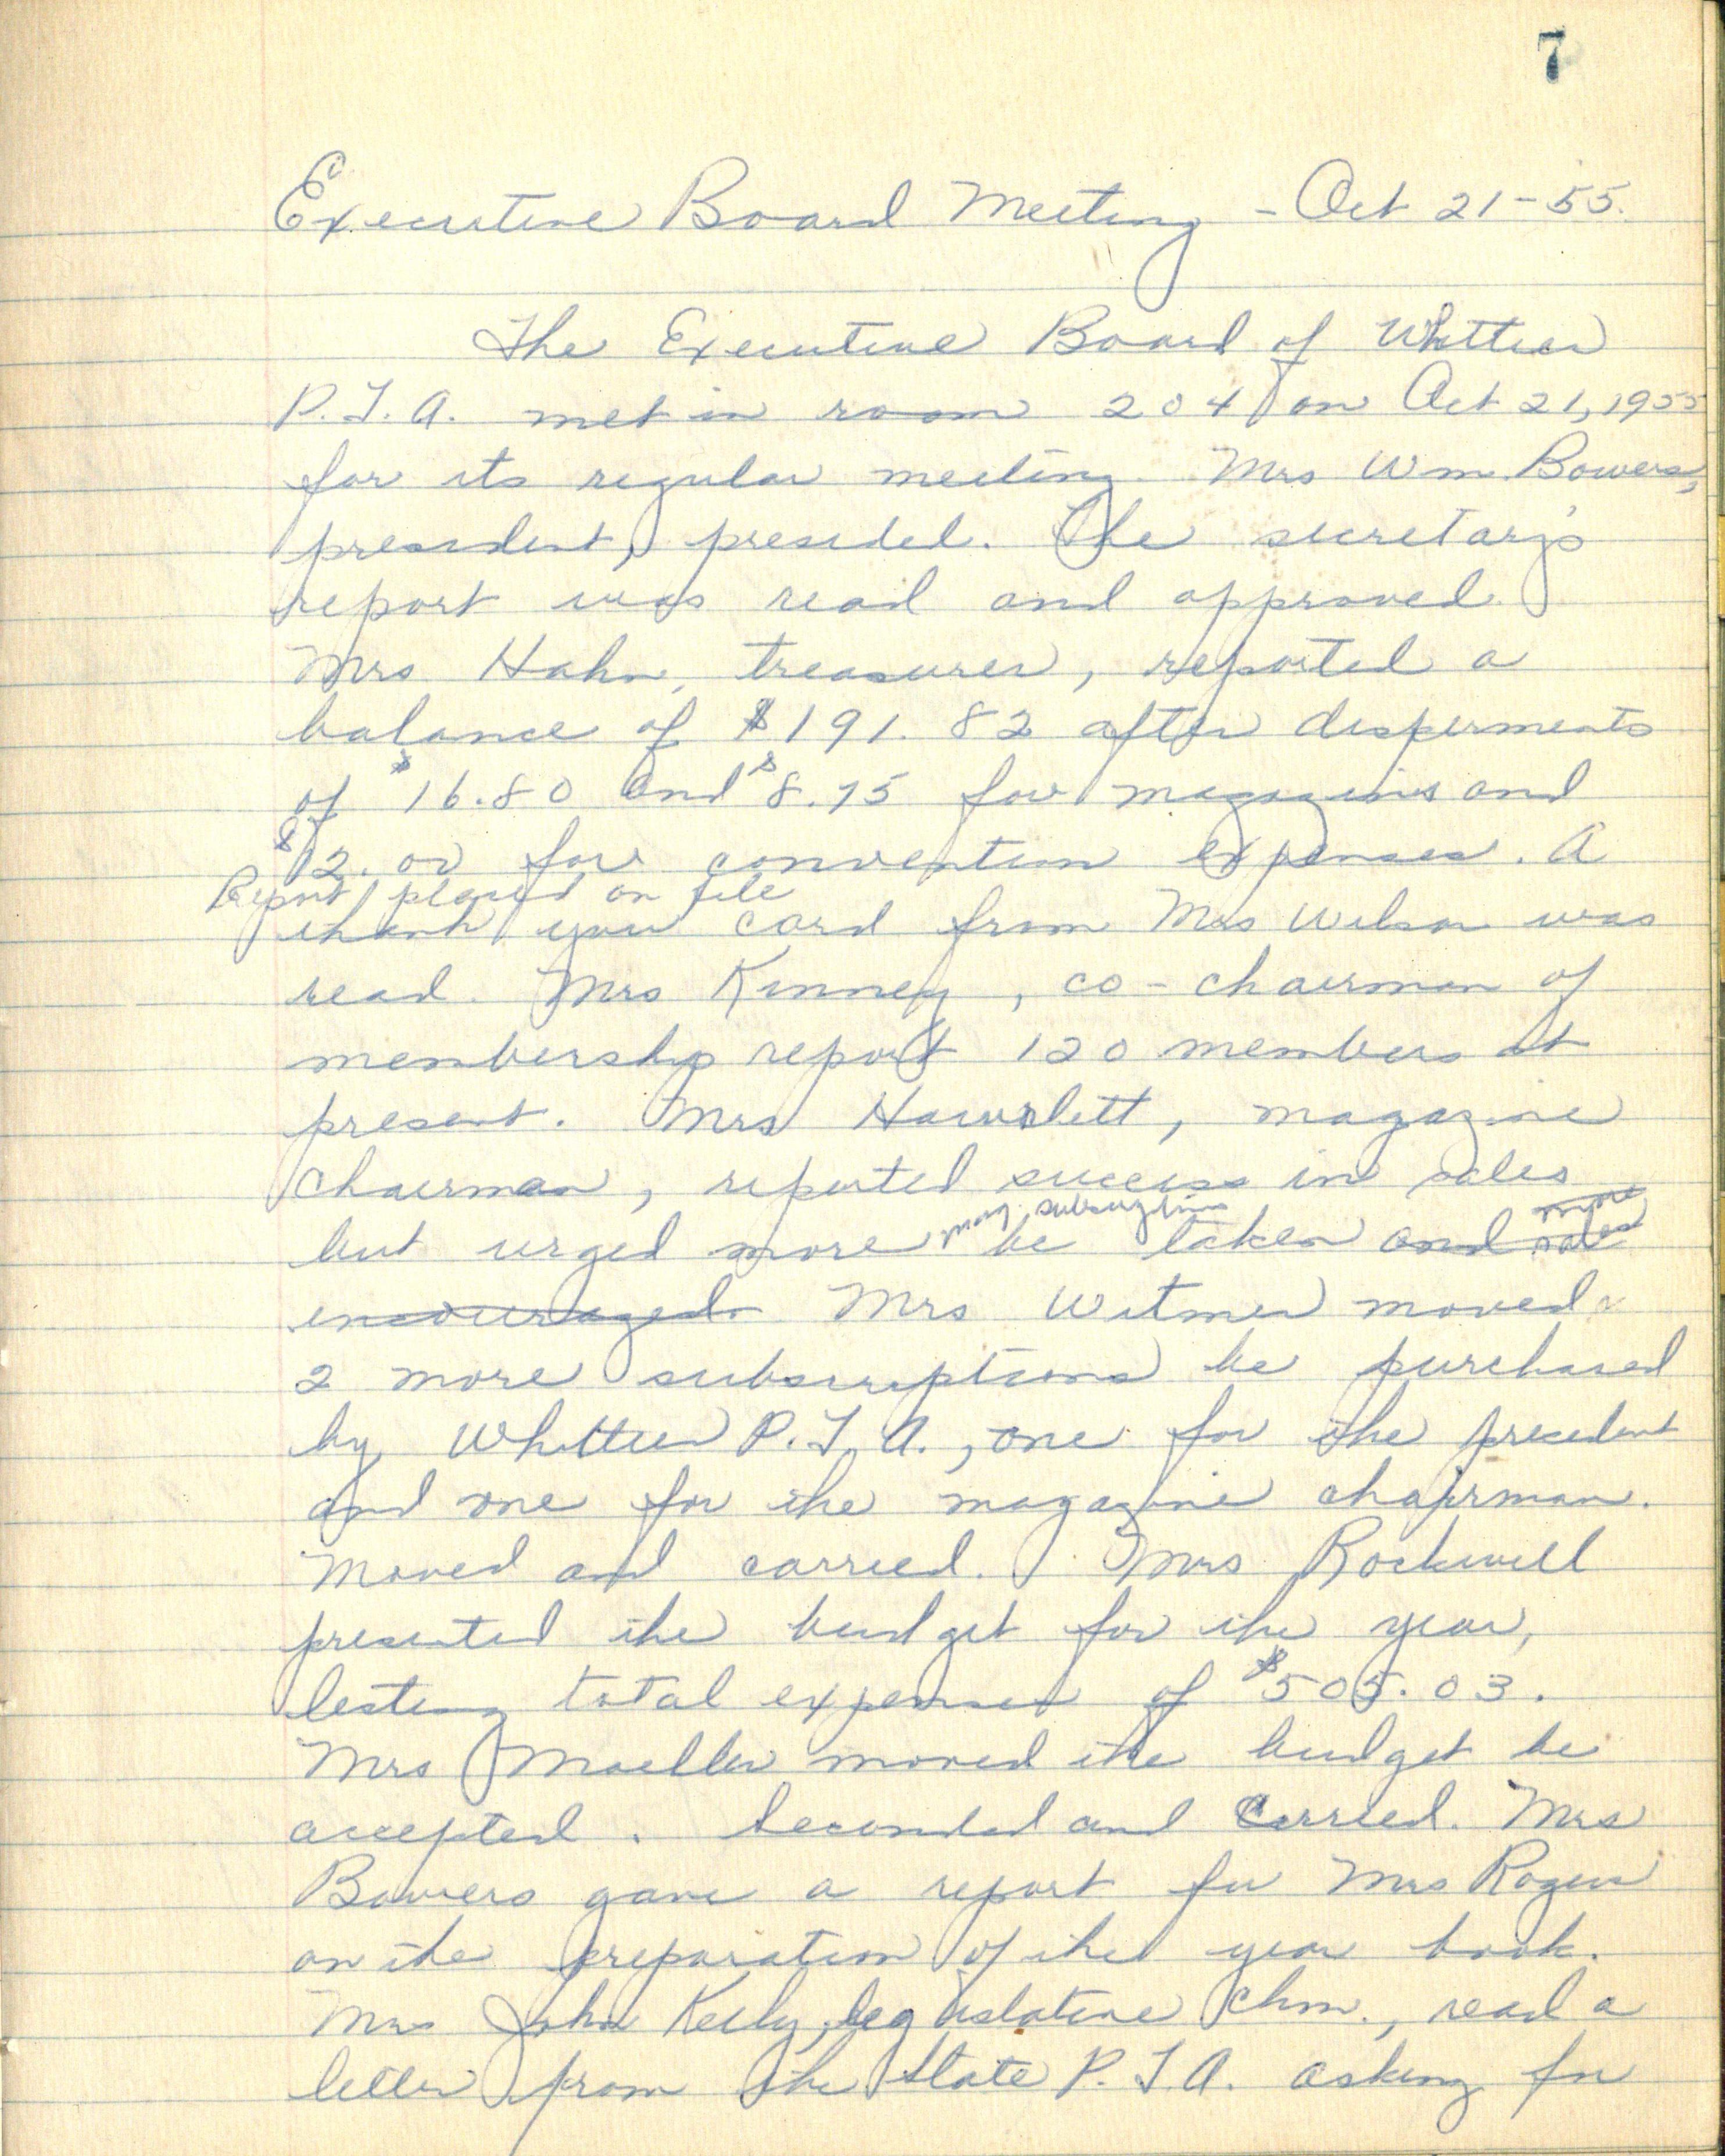 7
Executive Board Meeting - Oct 21-55.
The Executive Board of Whittier
P.T.A. met in room 204 on Oct 21, 1955
for its regular meeting. Mrs Wm. Bowers,
president, presided. The secretary's
report was read and approved.
Mrs Hahn, treasurer, reported a
balance of $191.82 after disperments
of $16.80 and $8.75 for magazins and
$12.00 for convention expenses. A
Report placed on file
thank you card from Mrs Wilson was
read. Mrs Kinney, co-chairman of
membership report 120 members at
present. Mrs Hawslett, magazine
chairman, reported success in sales
mag. subscriptions more
but urged more be taken and sales
encouraged. Mrs Witmer moved
2 more subscriptions be purchased
by Whittier P.T.A., one for the president
and one for the magazine chairman.
Moved and carried. Mrs Rockwell
presented the budget for the year,
listing total expenses of $505.03.
Mrs Moeller moved the budget be
accepted. Seconded and Carried. Mrs
Bowers gave a report for Mrs Rogers
on the preparation of the year book.
Mrs John Kelly, legislative chm., read a
letter from the State P.T.A. asking for